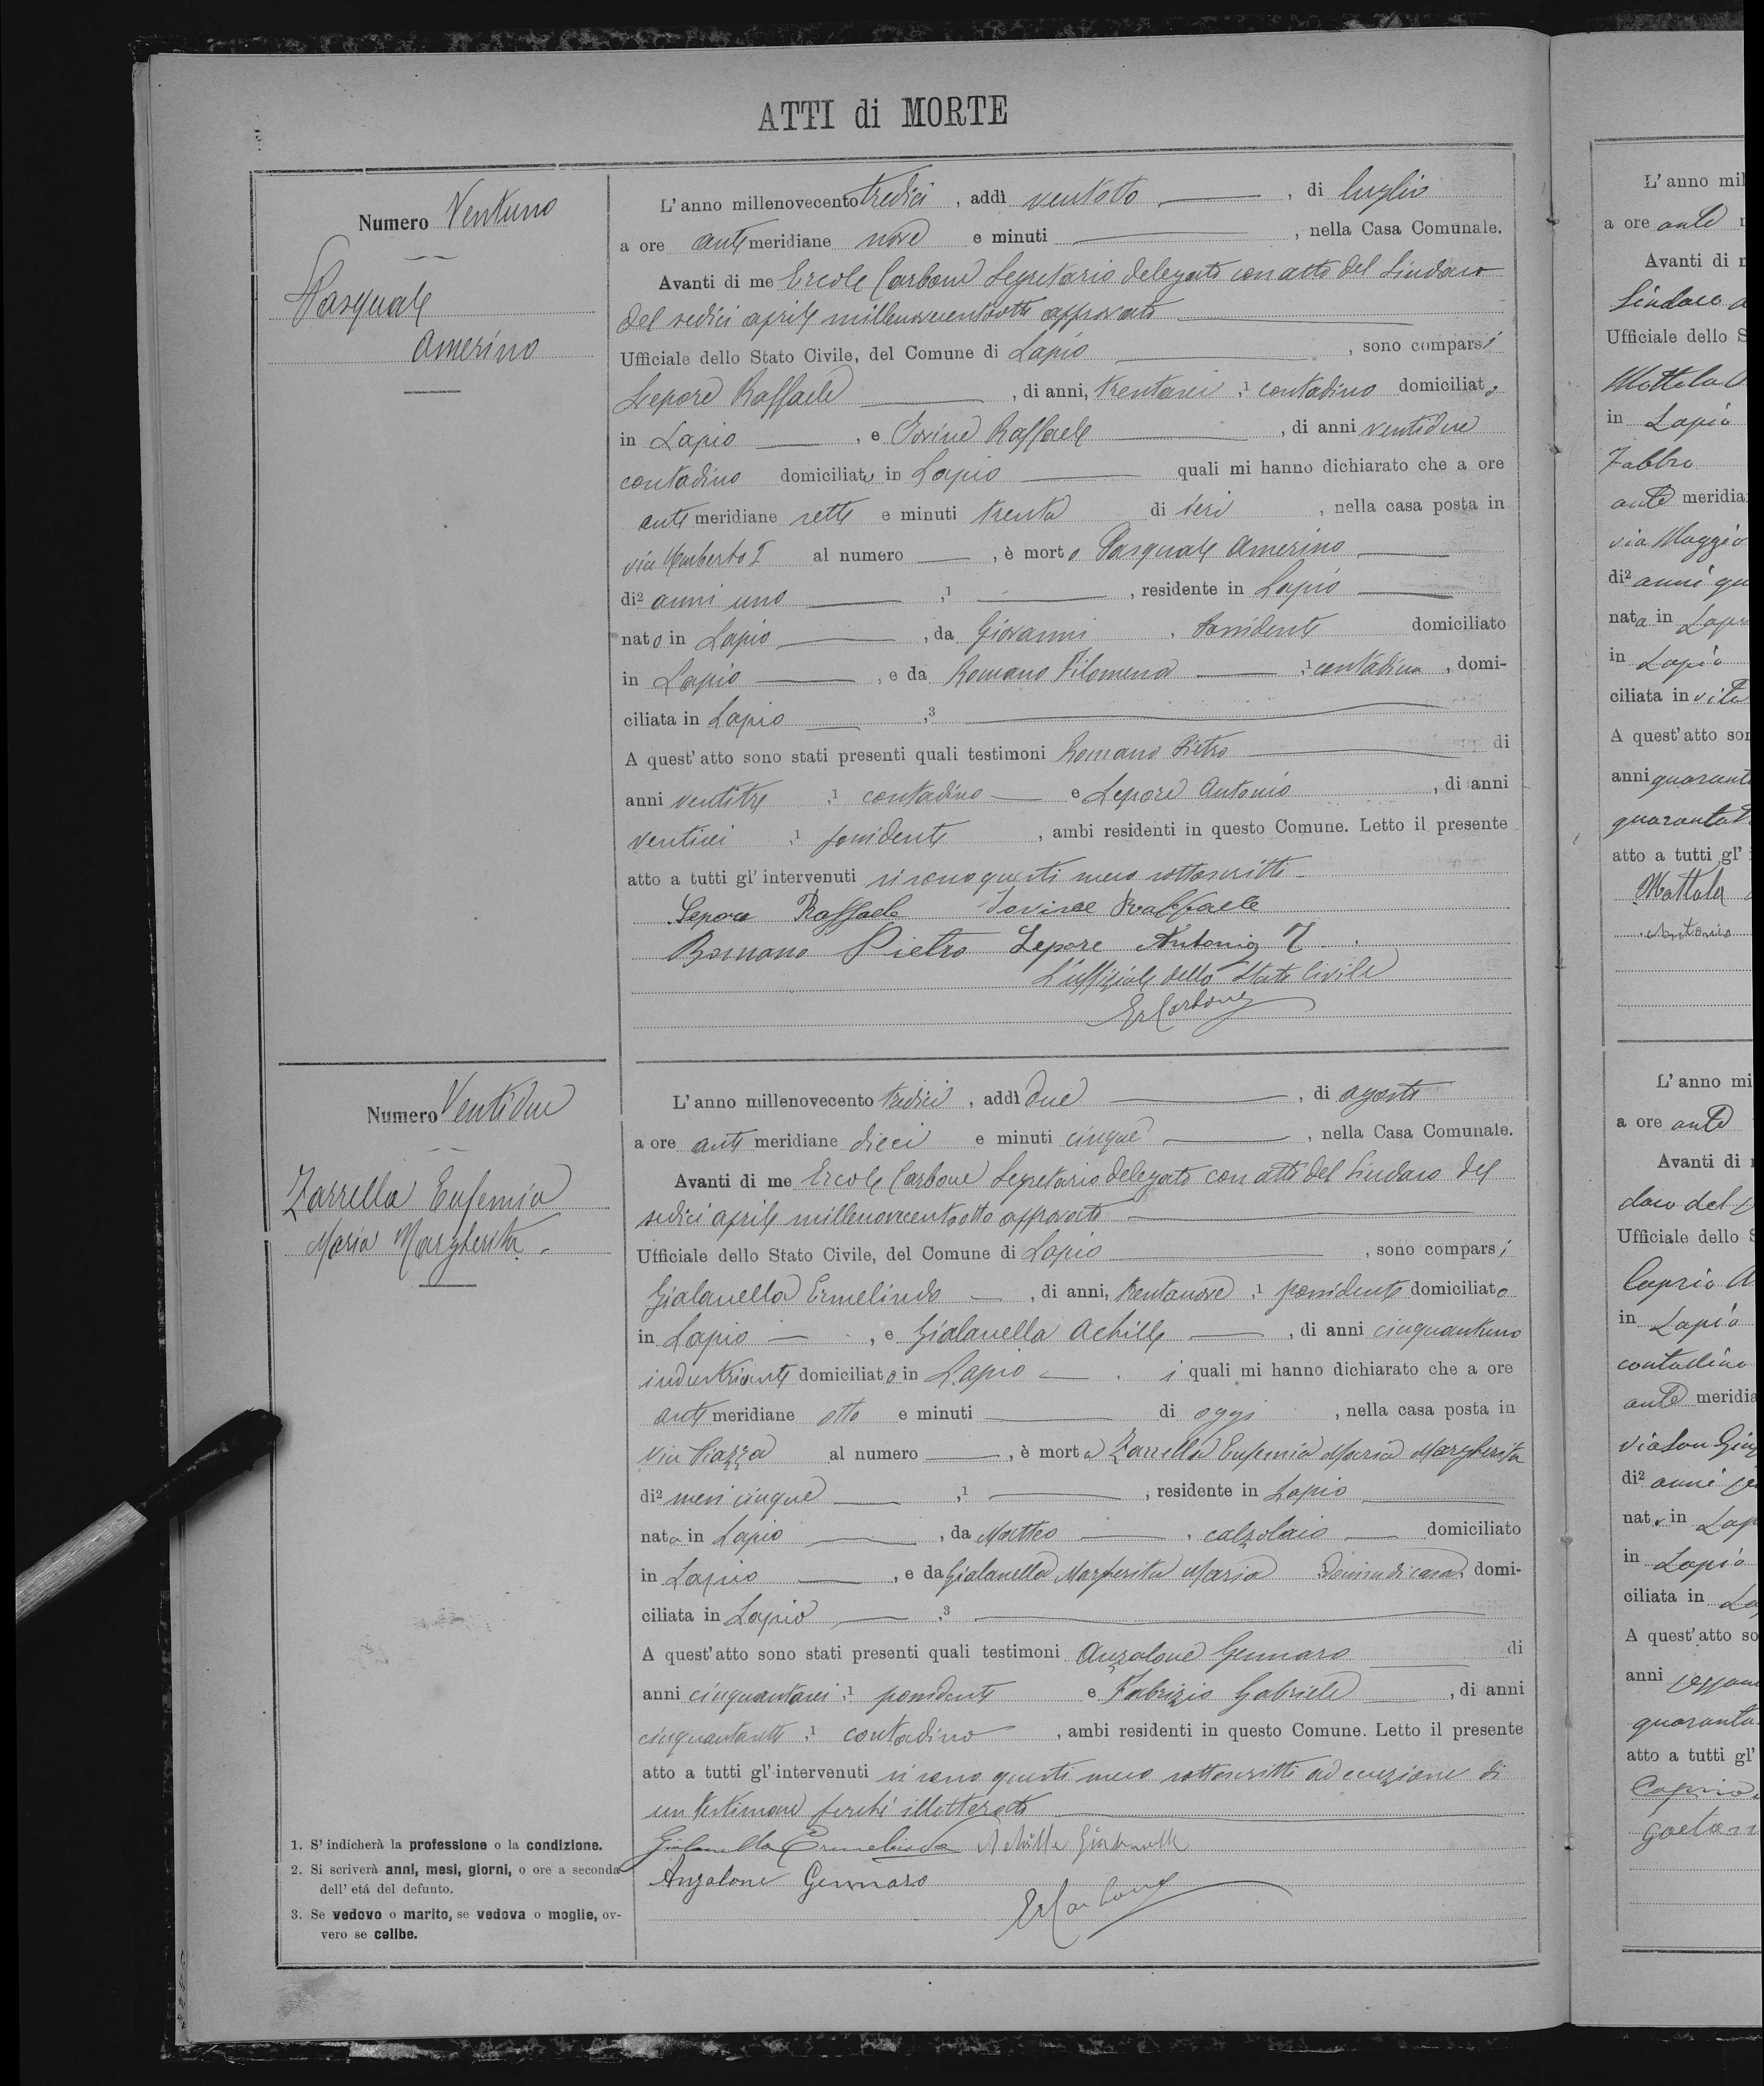 ATTI di MORTE
Numero Ventuno
Pasquale
Amerino
L'anno millenovecento tredici, addì ventotto, di luglio
a ore antemeridiane nove e minuti, nella Casa Comunale.
Avanti di me Ercole Carbone Segretario delegato con atto del Sindaco
del sedici aprile millenovecentootto approvato
Ufficiale dello Stato Civile, del Comune di Lapio, sono comparsi
Lepore Raffaele, di anni, trentasei, 1 contadino domiciliato
in Lapio, e Iovine Raffaele, di anni ventidue
contadino domiciliato in Lapio quali mi hanno dichiarato che a ore
ante meridiane sette e minuti trenta di ieri, nella casa posta in
via Umberto I al numero, è morto Pasquale Amerino
di2 anni uno, 1, residente in Lapio
nato in Lapio, da Giovanni, possidente domiciliato
in Lapio, e da Romano Filomena, 1 contadina, domi-
ciliata in Lapio, 3
A quest'atto sono stati presenti quali testimoni Romano Pietro di
anni ventitre, 1 contadino e Lepore Antonio, di anni
ventisei 1 possidente, ambi residenti in questo Comune. Letto il presente
atto a tutti gl'intervenuti si sono questi meco sottoscritti
Lepore Raffaele Iovine Raffaele
Romano Pietro Lepore Antonio
L'uffiziale dello Stato Civile
ErCarbone
Numero Ventidue
Zarrella Eufemia
Maria Margherita
L'anno millenovecento tredici, addì due, di agosto
a ore ante meridiane dieci e minuti cinque, nella Casa Comunale.
Avanti di me Ercole Carbone Segretario delegato con atto del Sindaco del
sedici aprile millenovecentootto approvato
Ufficiale dello Stato Civile, del Comune di Lapio, sono comparsi
Gialanella Ermelindo, di anni, trentanove, 1 possidente domiciliato
in Lapio, e Gialanella Achille, di anni cinquantuno
industriante domiciliato in Lapio i quali mi hanno dichiarato che a ore
ante meridiane otto e minuti di oggi, nella casa posta in
via Piazza al numero, è morta Zarrella Eufemia Maria Margherita
di2 mesi cinque, 1, residente in Lapio
nata in Lapio, da Matteo, calzolaio domiciliato
in Lapio, e da Gialanella Margherita Maria donna di casa, domi-
ciliata in Lapio, 3
A quest'atto sono stati presenti quali testimoni Anzalone Gennaro di
anni cinquantasei, 1 possidente e Fabrizio Gabriele, di anni
1 contadino, ambi residenti in questo Comune. Letto il presente
atto a tutti gl'intervenuti si sono questi meco sottoscritti ad eccezione di
un testimone perché illetterato
Gialanella Ermelindo Achille Gialanella
Anzalone Gennaro
ErCarbone
1. S'indicherà la professione o la condizione.
2. Si scriverà anni, mesi, giorni, o ore a seconda
dell'etá del defunto.
3. Se vedovo o marito, se vedova o moglie, ov-
vero se celibe.
L'anno mil
a ore ante
Avanti di
Sindaco
Ufficiale dello S
Mottola
in Lapio
Fabbro
ante meridia
via Maggio
di2 anni qu
nata in Lapi
in Lapio
ciliata in vita
A quest'atto son
anni quarant
quaranta
atto a tutti gl'
Mottola
Antonio
L'anno mi
a ore ante
Avanti di
daco del
Ufficiale dello S
Caprio A
in Lapio
contadino
ante meridia
via San Giu
di2 anni
nato in Lap
in Lapio
ciliata in La
A quest'atto so
anni sessan
quaranta
atto a tutti gl'
Caprio
Gaetan